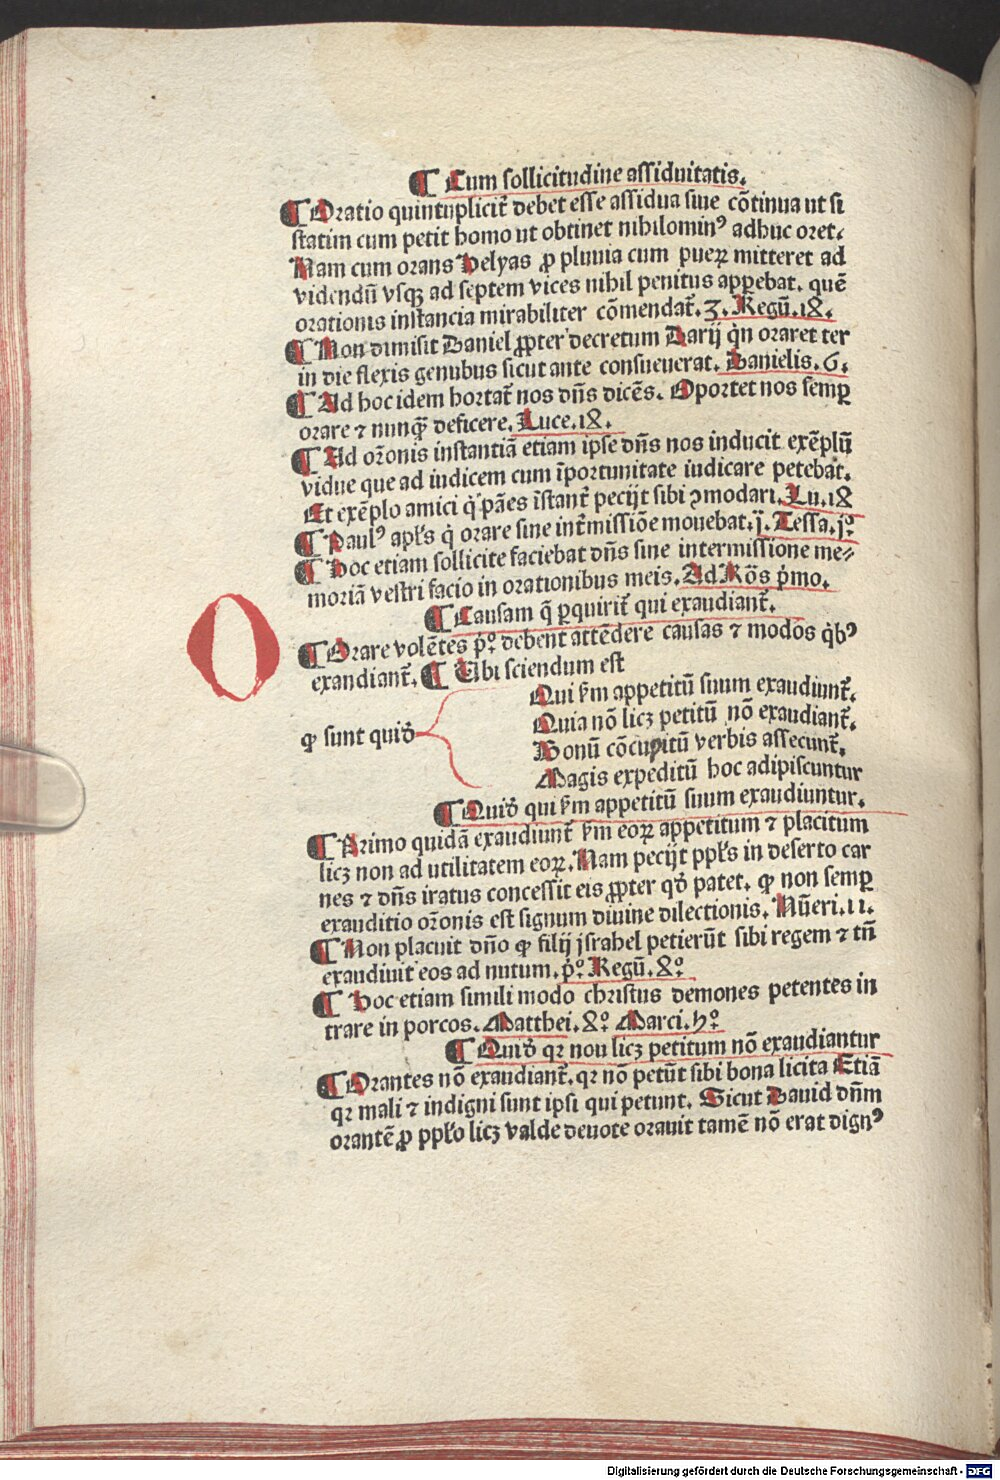 ¶ Cum sollicitudine assiduitatis.
¶ Oratio quintuplicit̄ debet esse assidua siue cōtinua ut si
statim cum petit homo ut obtinet nihilominꝰ adhuc oret.
Nam cum orans Helyas ꝓ pluuia cum pueꝝ mitteret ad
videndū vsqꝫ ad septem vices nihil penitus apꝑebat. quē
orationis instancia mirabiliter cōmendat̄. 3. Regū. 18.
¶ Non dimisit Daniel ꝓpter decretum Darij q̇n oraret ter
in die flexis genubus sicut ante consueuerat. Danielis. 6.
¶ Ad hoc idem hortat̄ nos dn̄s dicēs. Oportet nos semꝑ
orare ⁊ nunq̄ deficere. Luce. 18.
¶ Ad or̄onis instantiā etiam ipse dn̄s nos inducit exēplū
vidue que ad iudicem cum īportunitate iudicare petebat.
Et exēplo amici q̇ pāes īstant̄ pecijt sibi ꝯmodari. Lu. 18
¶ Paulꝰ apl̄s q̇ orare sine int̄missiōe mouebat. j. Tessa. jͦ.
¶ Hoc etiam sollicite faciebat dn̄s sine intermissione me⸗
moriā vestri facio in orationibus meis. Ad Rōs p̄mo.
¶ Causam q̄ ꝑquirit̄ qui exaudiant̄.
O
¶ Orare volētes pͦ. debent attēdere causas ⁊ modos q̇bꝰ
exaudiant̄. ¶ Ubi sciendum est
ꝙ sunt quid̄
Qui ẜm appetitū suum exaudiunt̄.
Quia nō licꝫ petitū nō exaudiant̄.
Bonū cōcupitū verbis assecunt̄.
Magis expeditū hoc adipiscuntur
¶ Quid̄ qui ẜm appetitū suum exaudiuntur.
¶ Primo quidā exaudiunt̄ ẜm eoꝝ appetitum ⁊ placitum
licꝫ non ad utilitatem eoꝝ. Nam pecijt ppl̄s in deserto car
nes ⁊ dn̄s iratus concessit eis ꝓpter qd̄ patet. ꝙ non semꝑ
exauditio or̄onis est signum diuine dilectionis. Nūeri. 11.
¶ Non placuit dn̄o ꝙ filij jsrahel petierūt sibi regem ⁊ tn̄
exaudiuit eos ad nutum. pͦ. Regū. 8ͦ.
¶ Hoc etiam simili modo christus demones petentes in
trare in porcos. Matthei. 8ͦ. Marci. 5ͦ.
¶ Quid̄ qꝛ non licꝫ petitum nō exaudiantur
¶ Orantes nō exaudiant̄. qꝛ nō petūt sibi bona licita Etiā
qꝛ mali ⁊ indigni sunt ipsi qui petunt. Sicut Dauid dn̄m
orantē ꝓ ppl̄o licꝫ valde deuote orauit tamē nō erat dignꝰ
Digitalisierung gefördert durch die Deutsche Forschungsgemeinschaft - DFG